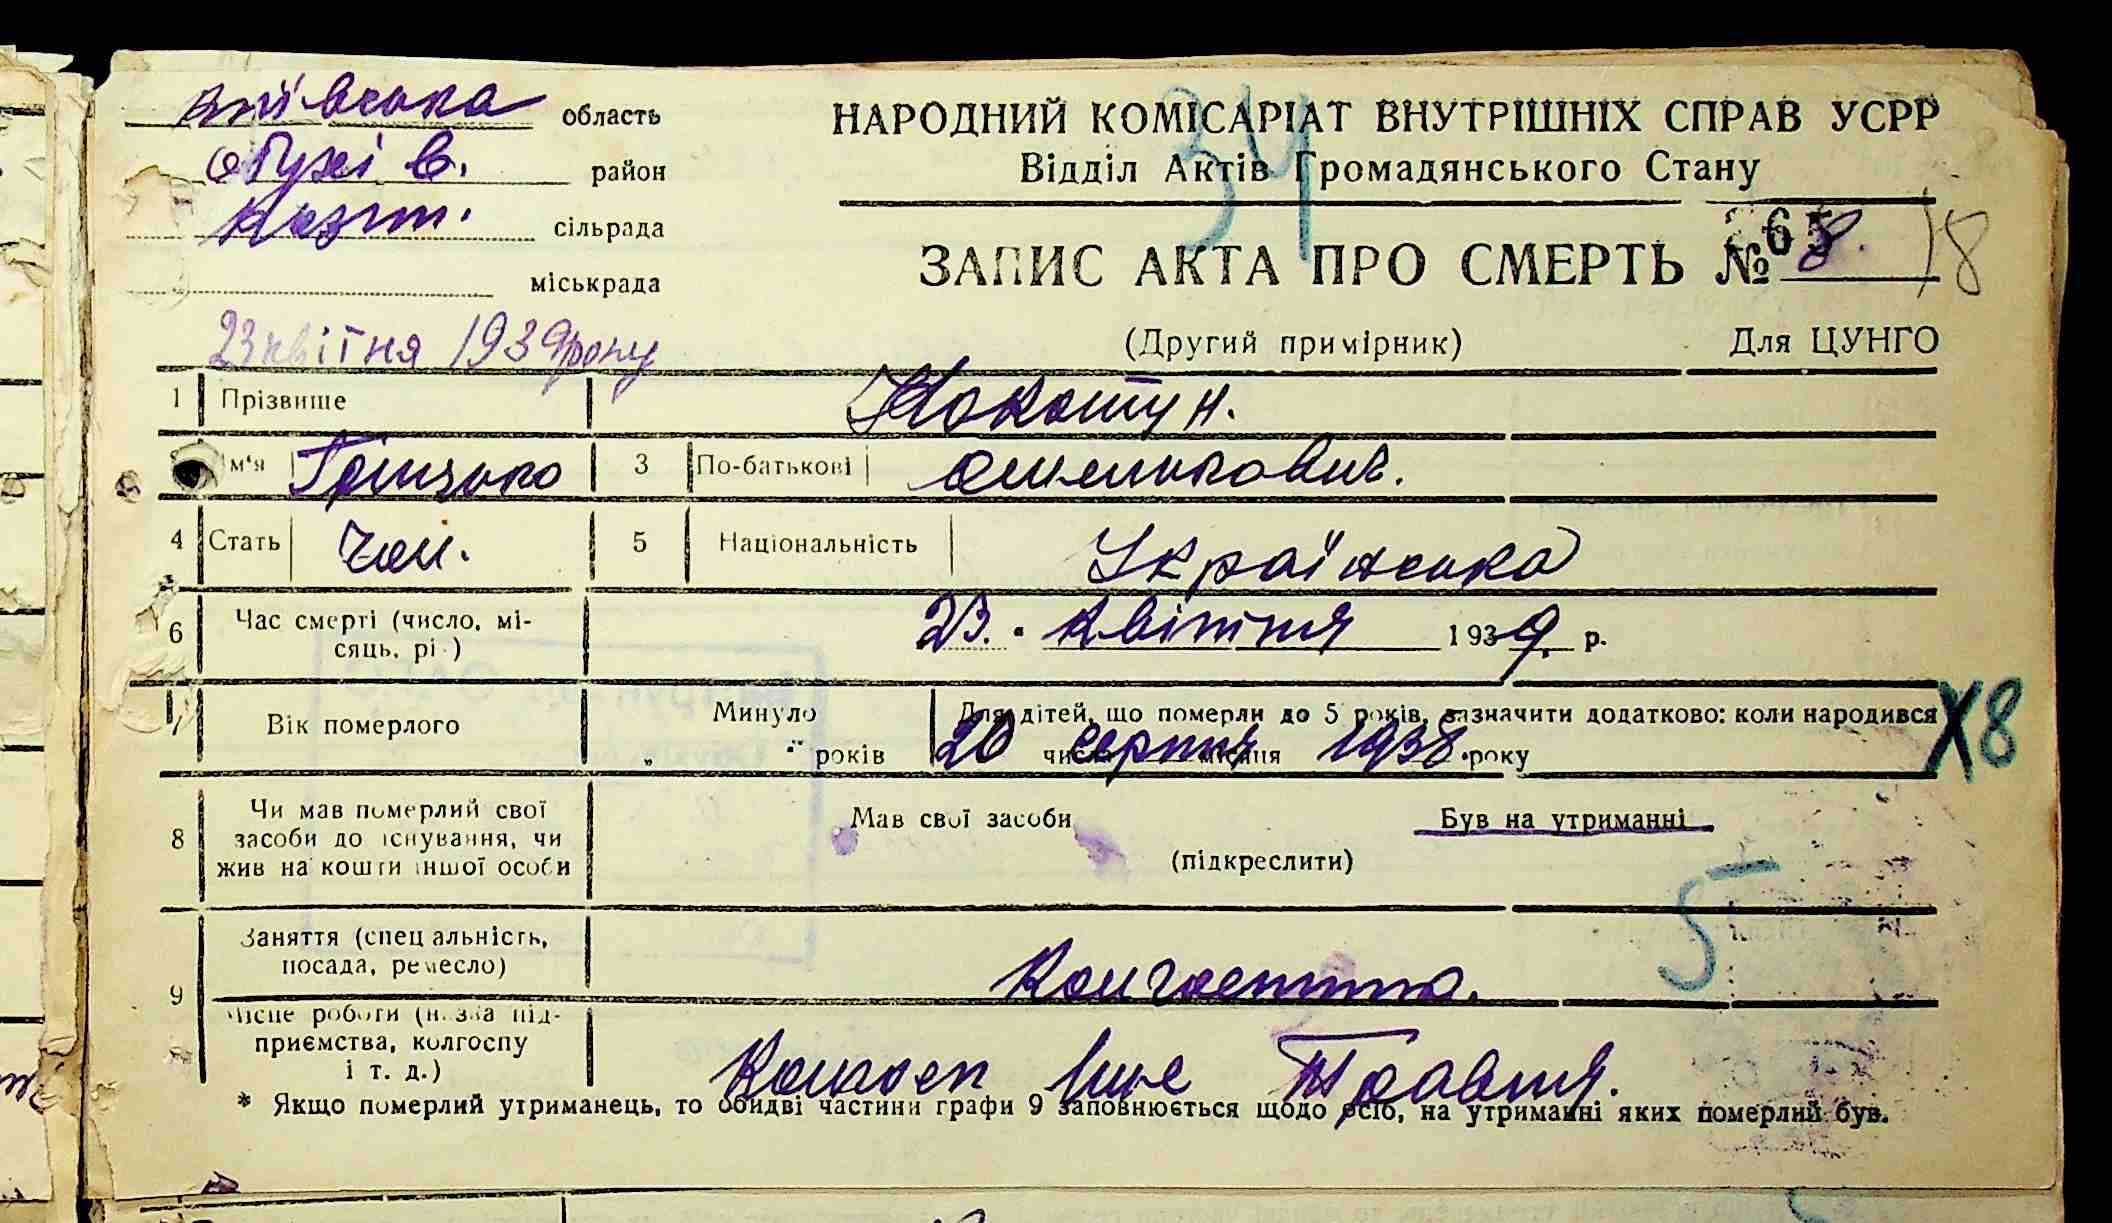 Київська область
Обухів. район
сільрада
міськрада
НАРОДНИЙ КОМІСАРІАТ ВНУТРІШНІХ СПРАВ УСРР
Відділ Актів Громадянського Стану
34
ЗАПИС АКТА ПРО СМЕРТЬ № 8. 18
(Другий примірник) Для ЦУНГО
23 квітня 1939 року
1 Прізвище Кокотун.
м'я Грицько 3 По-батькові Омелькович.
4 Стать Чол. 5 Національність Українська
6 Час смерті (число, мі-
сяць, рі )
23. квітня 1939 р.
7 Вік померлого Минуло років
Для дітей, що померли до 5 років, зазначити додатково: коли народився
20 число серпня місяця 1938 року
X8
8 Чи мав померлий свої
засоби до існування, чи
жив на кошти іншої особи
Мав свої засоби Був на утриманні
(підкреслити)
5
9 Заняття (спеціальність,
посада, ремесло)
Колгоспник.
Місце роботи (назва під-
приємства, колгоспу
і т. д.)
Колгосп Травня.
* Якщо померлий утриманець, то обидві частини графи 9 заповнюється щодо осіб, на утриманні яких померлий був.